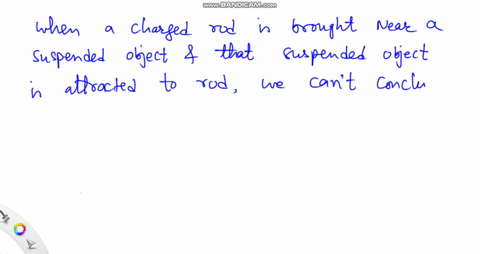 WWW.BANDICAM.COM
When a charged rod is brought near a
suspended object & that suspended object
is attracted to rod, we can't conclu